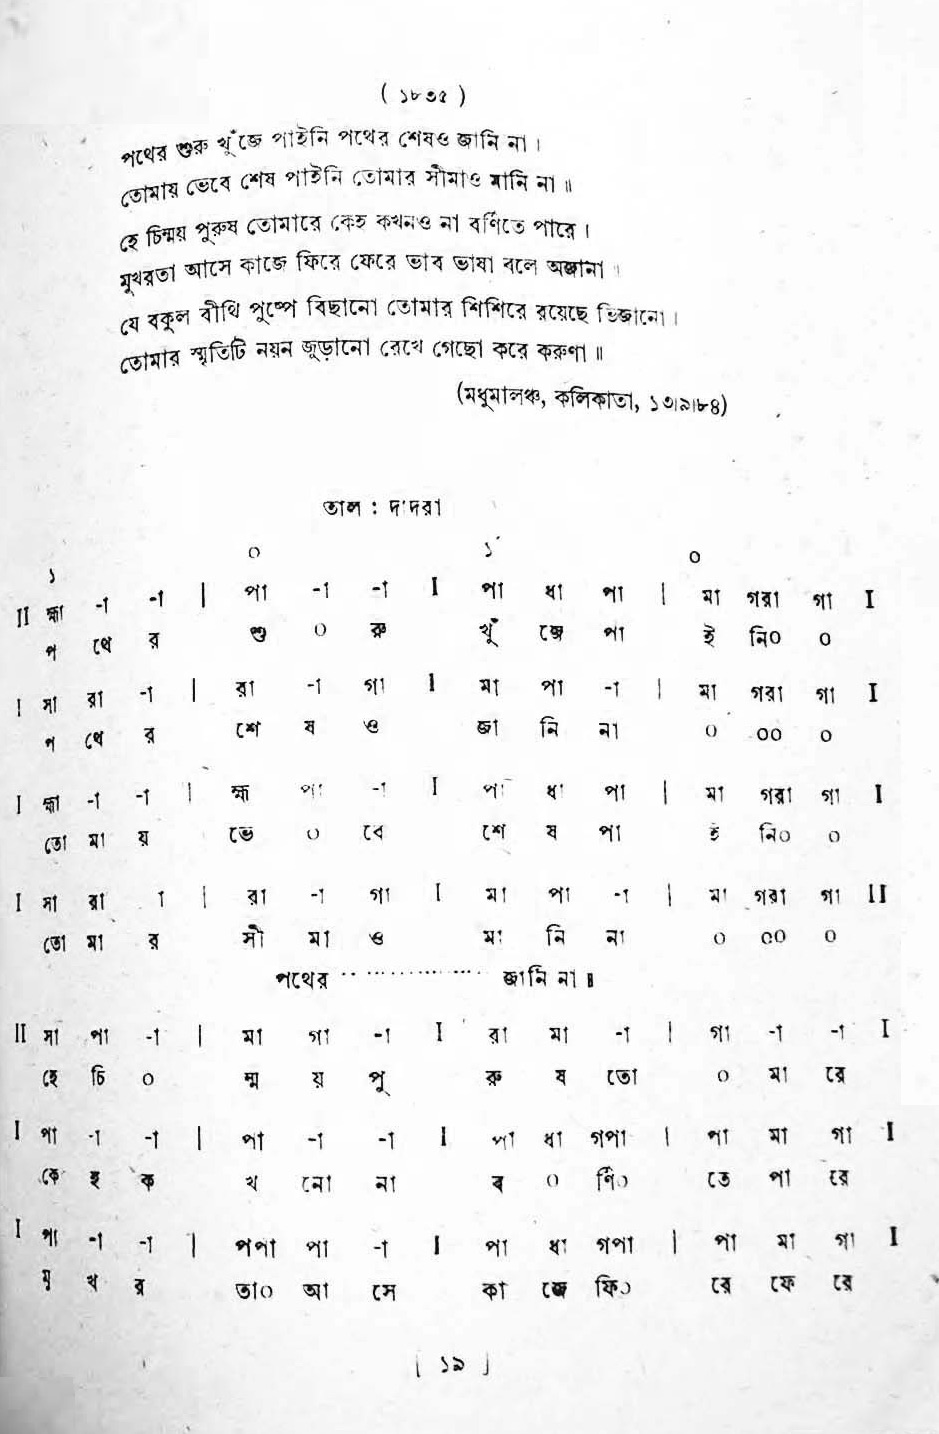 ( ১৮৩৫ )
পথের শুরু খুঁজে পাইনি পথের শেষও জানি না ।
তোমায় ভেবে শেষ পাইনি তোমার সীমাও মানি না ॥
হে চিন্ময় পুরুষ তোমারে কেহ কখনও না বর্ণিতে পারে ।
মুখরতা আসে কাজে ফিরে ফেরে ভাব ভাষা বলে অজানা ।
যে বকুল বীথি পুষ্পে বিছানো তোমার শিশিরে রয়েছে ভিজানো ।
তোমার স্মৃতিটি নয়ন জুড়ানো রেখে গেছো করে করুণা ॥
(মধুমালঞ্চ, কলিকাতা, ১৩।৯।৮৪)
তাল : দাদরা
১ ০ ১´ ০
II হ্মা -া -া | পা -া -া I পা ধা পা | মা গরা গা I
প থে র শু ০ রু খুঁ জে পা ই নি০ ০
I সা রা -া | রা -া গা I মা পা -া | মা গরা গা I
প থে র শে ষ ও জা নি না ০ ০০ ০
I হ্মা -া -া | হ্ম পা -া I পা ধা পা | মা গরা গা I
তো মা য় ভে ০ বে শে ষ পা ই নি০ ০
I সা রা া | রা -া গা I মা পা -া | মা গরা গা II
তো মা র সী মা ও মা নি না ০ ০০ ০
পথের ................ জানি না ॥
II সা পা -া | মা গা -া I রা মা -া | গা -া -া I
হে চি ০ ন্ম য় পু রু ষ তো ০ মা রে
I পা -া -া | পা -া -া I পা ধা গপা | পা মা গা I
কে হ ক খ নো না ব ০ র্ণি০ তে পা রে
I পা -া -া | পপা পা -া I পা ধা গপা | পা মা গা I
মু খ র তা০ আ সে কা জে ফি০ রে ফে রে
[ ১৯ ]